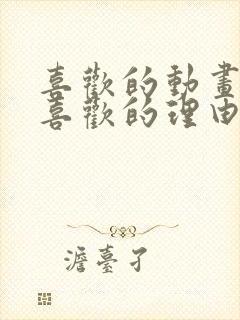 喜歡的動畫
喜歡的理由
澹臺孑